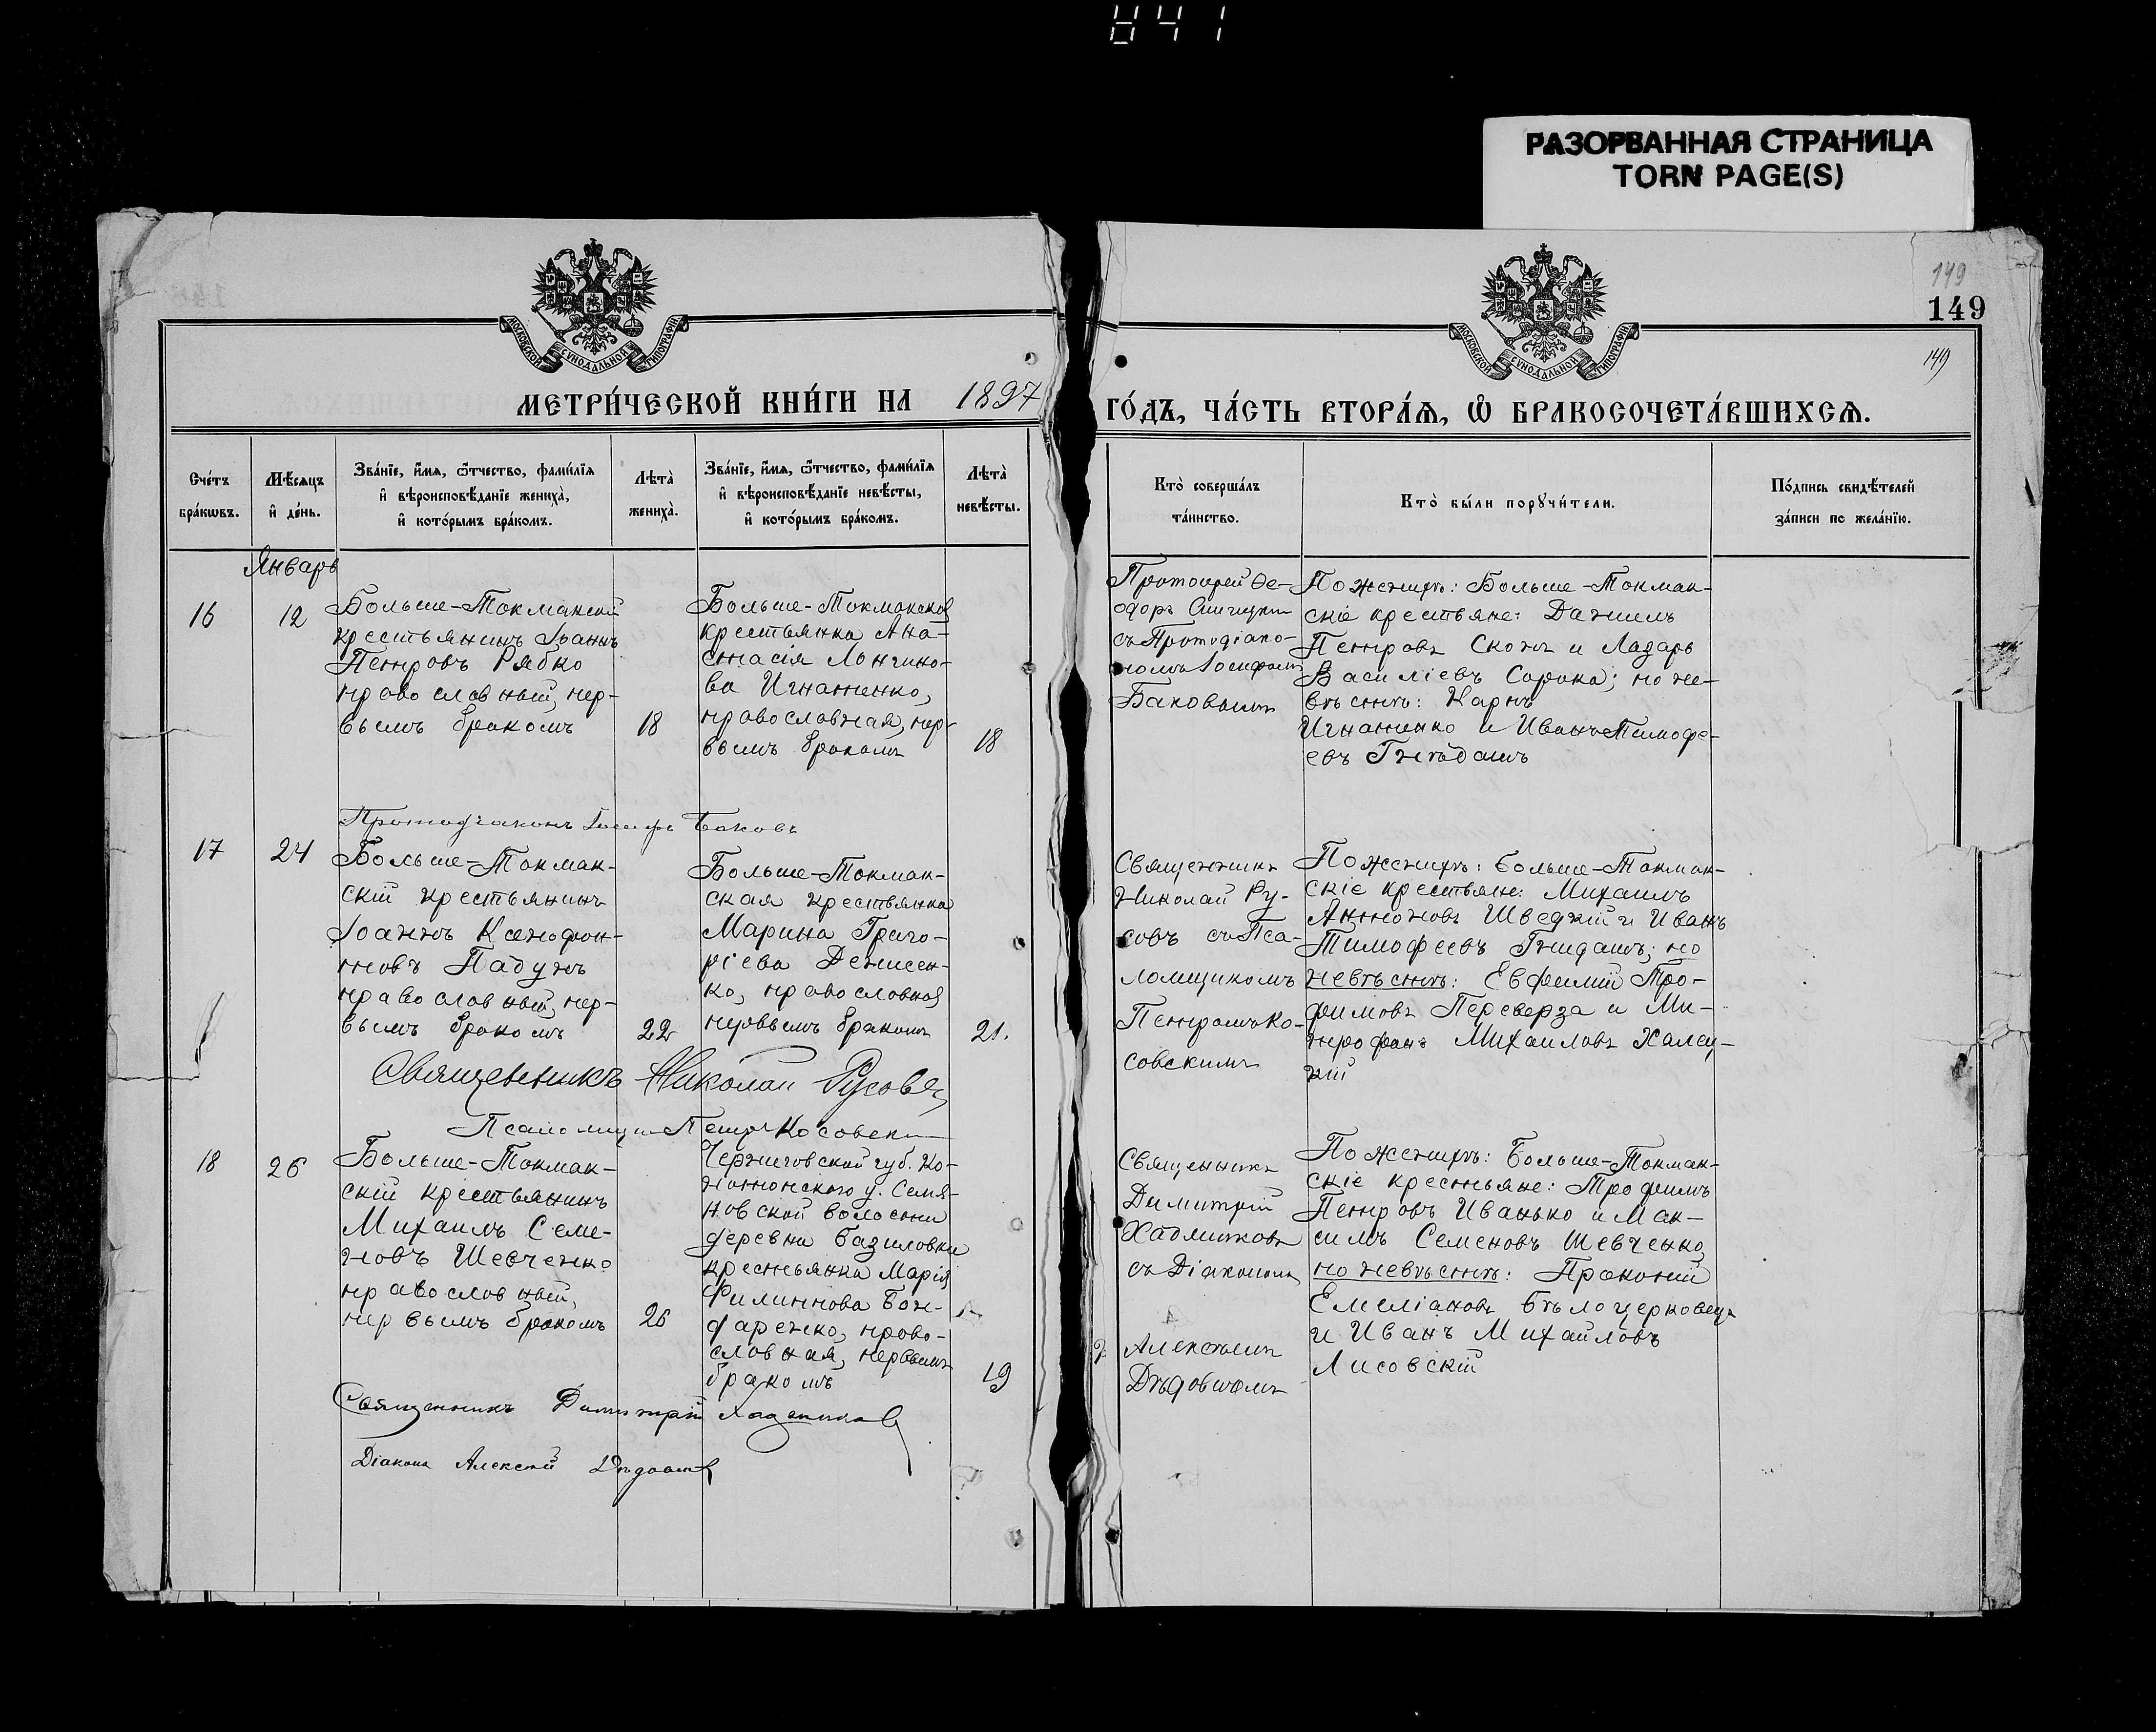 841
РАЗОРВАННАЯ СТРАНИЦА
TORN PAGE(S)
149
149
149
МОСКОВСКОЙ СѴНОДАЛЬНОЙ ТИПОГРАФІИ
МОСКОВСКОЙ СѴНОДАЛЬНОЙ ТИПОГРАФІИ
МЕТРИ́ЧЕСКОЙ КНИ́ГИ НА 1897 ГО́ДЪ, ЧА́СТЬ ВТОРА́Ѧ, Ѡ҆ БРАКОСОЧЕТА́ВШИХСѦ.
Сче́тъ
бра́кѡвъ.
Мѣ́сѧцъ
и҆ де́нь.
Зва́нїе, и҆́мѧ, ѻ҆́тчество, фами́лїѧ
и҆ вѣроисповѣ́данїе жениха̀,
и҆ кото́рымъ бра́комъ.
Лѣта̀
жениха̀.
Зва́нїе, и҆́мѧ, ѻ҆́тчество, фами́лїѧ
и҆ вѣроисповѣ́данїе невѣ́сты,
и҆ кото́рымъ бра́комъ.
Лѣта̀
невѣ́сты.
Кто̀ соверша́лъ
та́инство.
Кто̀ бы́ли порꙋчи́тели.
По́дпись свидѣ́телей
за́писи по жела́нїю.
Январь
16
12
Больше-Токманскій
крестьянинъ Іоаннъ
Петровъ Рябко
православный, пер-
вымъ бракомъ
18
Больше-Токманская
крестьянка Ана-
стасія Лонгино-
ва Игнатенко,
православная, пер-
вымъ бракомъ
18
Протоіерей Ѳе-
одоръ
съ Протодіако-
номъ Іосифомъ
Баковымъ
По женихѣ: Больше-Токман-
скіе крестьяне: Даніилъ
Петровъ Скотъ и Лазарь
Василіевъ Сорока; по не-
вѣстѣ: Карпъ
Игнатенко и Иванъ Тимофе-
евъ Гнѣдашъ
Протодіаконъ Іосифъ Баковъ
17
24
Больше-Токмак-
скій крестьянинъ
Іоаннъ Ксенофон-
товъ Падунъ
православный, пер-
вымъ бракомъ
22
Больше-Токмак-
ская крестьянка
Марина Григо-
ріева Денисен-
ко, православная
первымъ бракомъ
21.
Священникъ
Николай Ру-
совъ съ Пса-
ломщикомъ
Петромъ Ко-
совскимъ
По женихѣ: Больше-Токмак-
скіе крестьяне: Михаилъ
Антоновъ Шведкій и Иванъ
Тимофеевъ Гнидашъ; по
невѣстѣ: Евфимій Тро-
фимовъ Переверза и Ми-
трофанъ Михаиловъ Халец-
кій
Священникъ Николай Русовъ
Псаломщикъ Петръ Косовскій
18
26
Больше-Токмак-
скій крестьянинъ
Михаилъ Семе-
новъ Шевченко
православный,
первымъ бракомъ
26
Черниговской губ. Ко-
нотопского у. Семя-
новской волости
деревни Базиловки
крестьянка Марія
Филиппова Бон-
даренко, право-
славная, первымъ
бракомъ
19
Священникъ
Димитрій
съ Діакономъ
Алексѣемъ
Дѣдовичемъ
По женихѣ: Больше-Токмак-
скіе крестьяне: Трофимъ
Петровъ Иванько и Мак-
симъ Семеновъ Шевченко,
по невѣстѣ: Прокопій
Емеліановъ Бѣлоцерковецъ
и Иванъ Михайловъ
Лисовскій
Священникъ Димитрій
Діаконъ Алексѣй